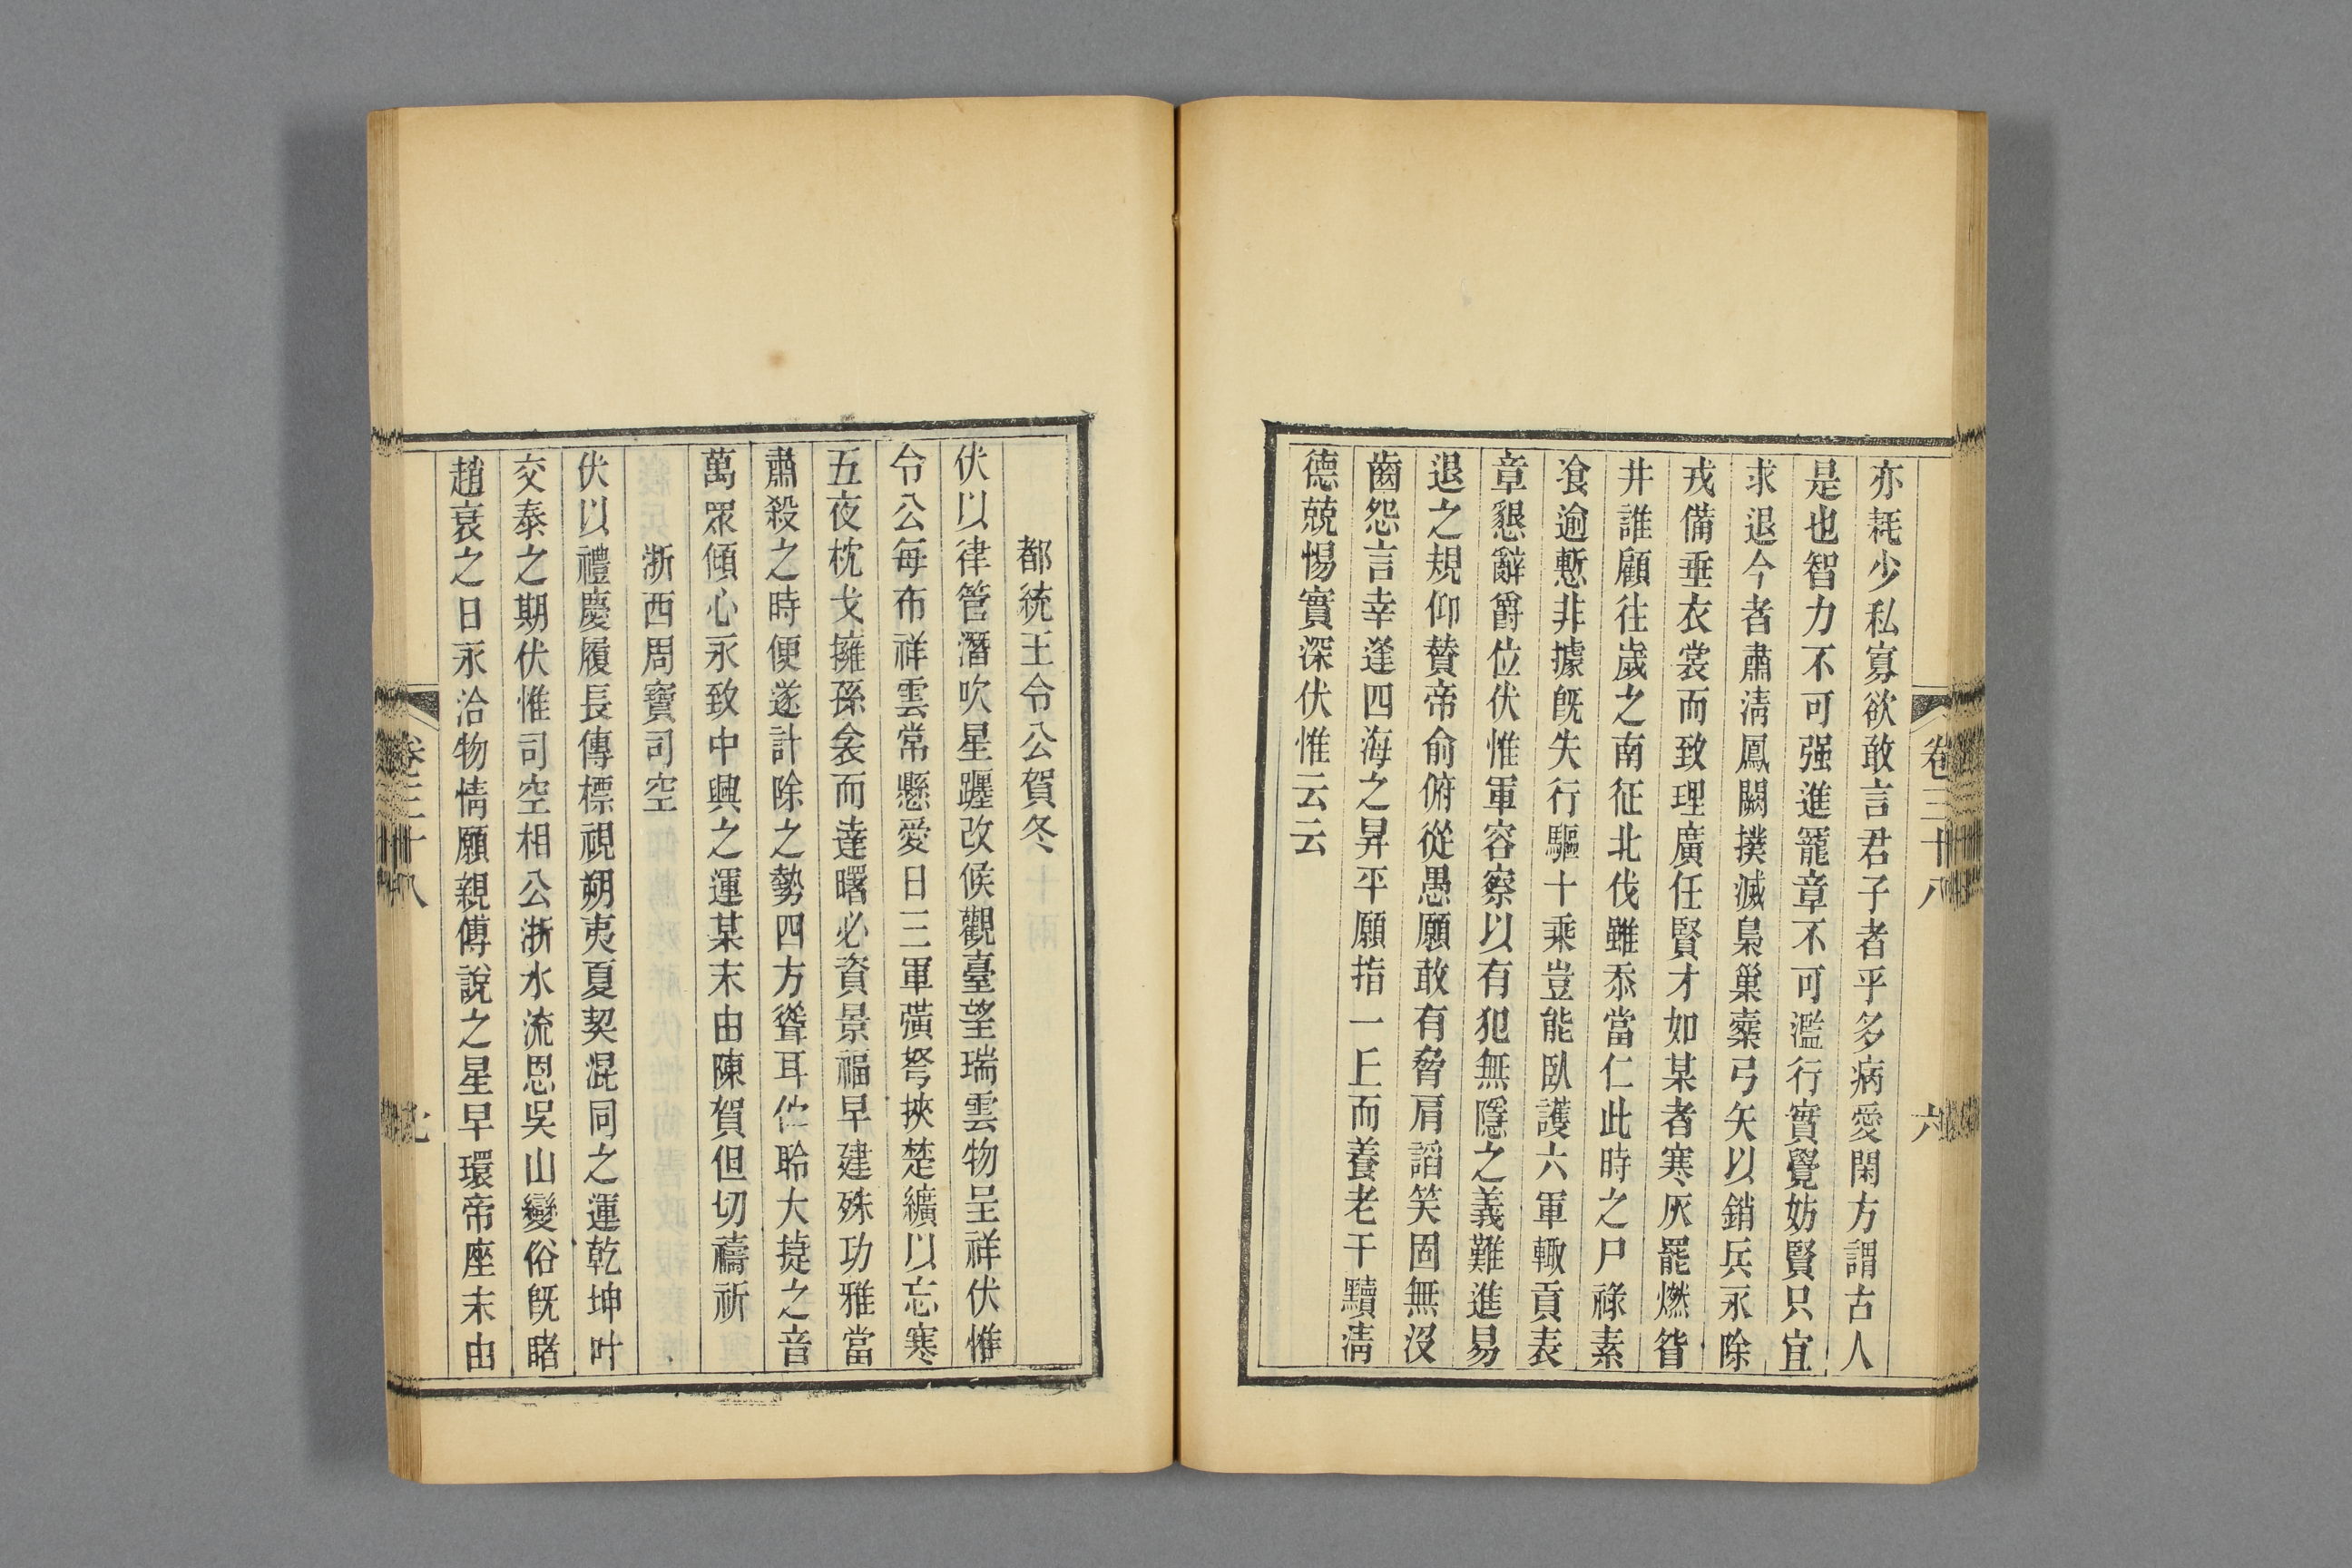 卷三十八
六
亦耗少私寡欲敢言君子者乎多病愛閑方謂古人
是也智力不可强進寵章不可濫行實覺妨賢只宜
求退今者肅淸鳳闕撲滅梟巢櫜弓矢以銷兵永除
戎備垂衣裳而致理廣任賢才如某者寒灰罷燃眢
井誰顧往歲之南征北伐雖忝當仁此時之尸祿素
飡逾慙非據旣失行驅十乘豈能臥護六軍輙貢表
章懇辭爵位伏惟軍容察以有犯無隱之義難進易
退之規仰贊帝俞俯從愚願敢有脅肩謟笑固無沒
齒怨言幸逢四海之昇平願指一丘而養老干黷淸
德兢惕實深伏惟云云
都統王令公賀冬
伏以律管潛吹星躔改候觀臺望瑞雲物呈祥伏惟
令公每布祥雲常懸愛日三軍彍弩挾楚纊以忘寒
五夜枕戈擁孫衾而達曙必資景福早建殊功雅當
肅殺之時便遂計除之勢四方聳耳伫聆大㨗之音
萬眾傾心永致中興之運某末由陳賀但切禱祈
浙西周寶司空
伏以禮慶履長傳標視朔夷夏契混同之運乾坤叶
交泰之期伏惟司空相公浙水流恩吳山變俗旣睹
趙衰之日永洽物情願親傅說之星早環帝座末由
卷三十八
七